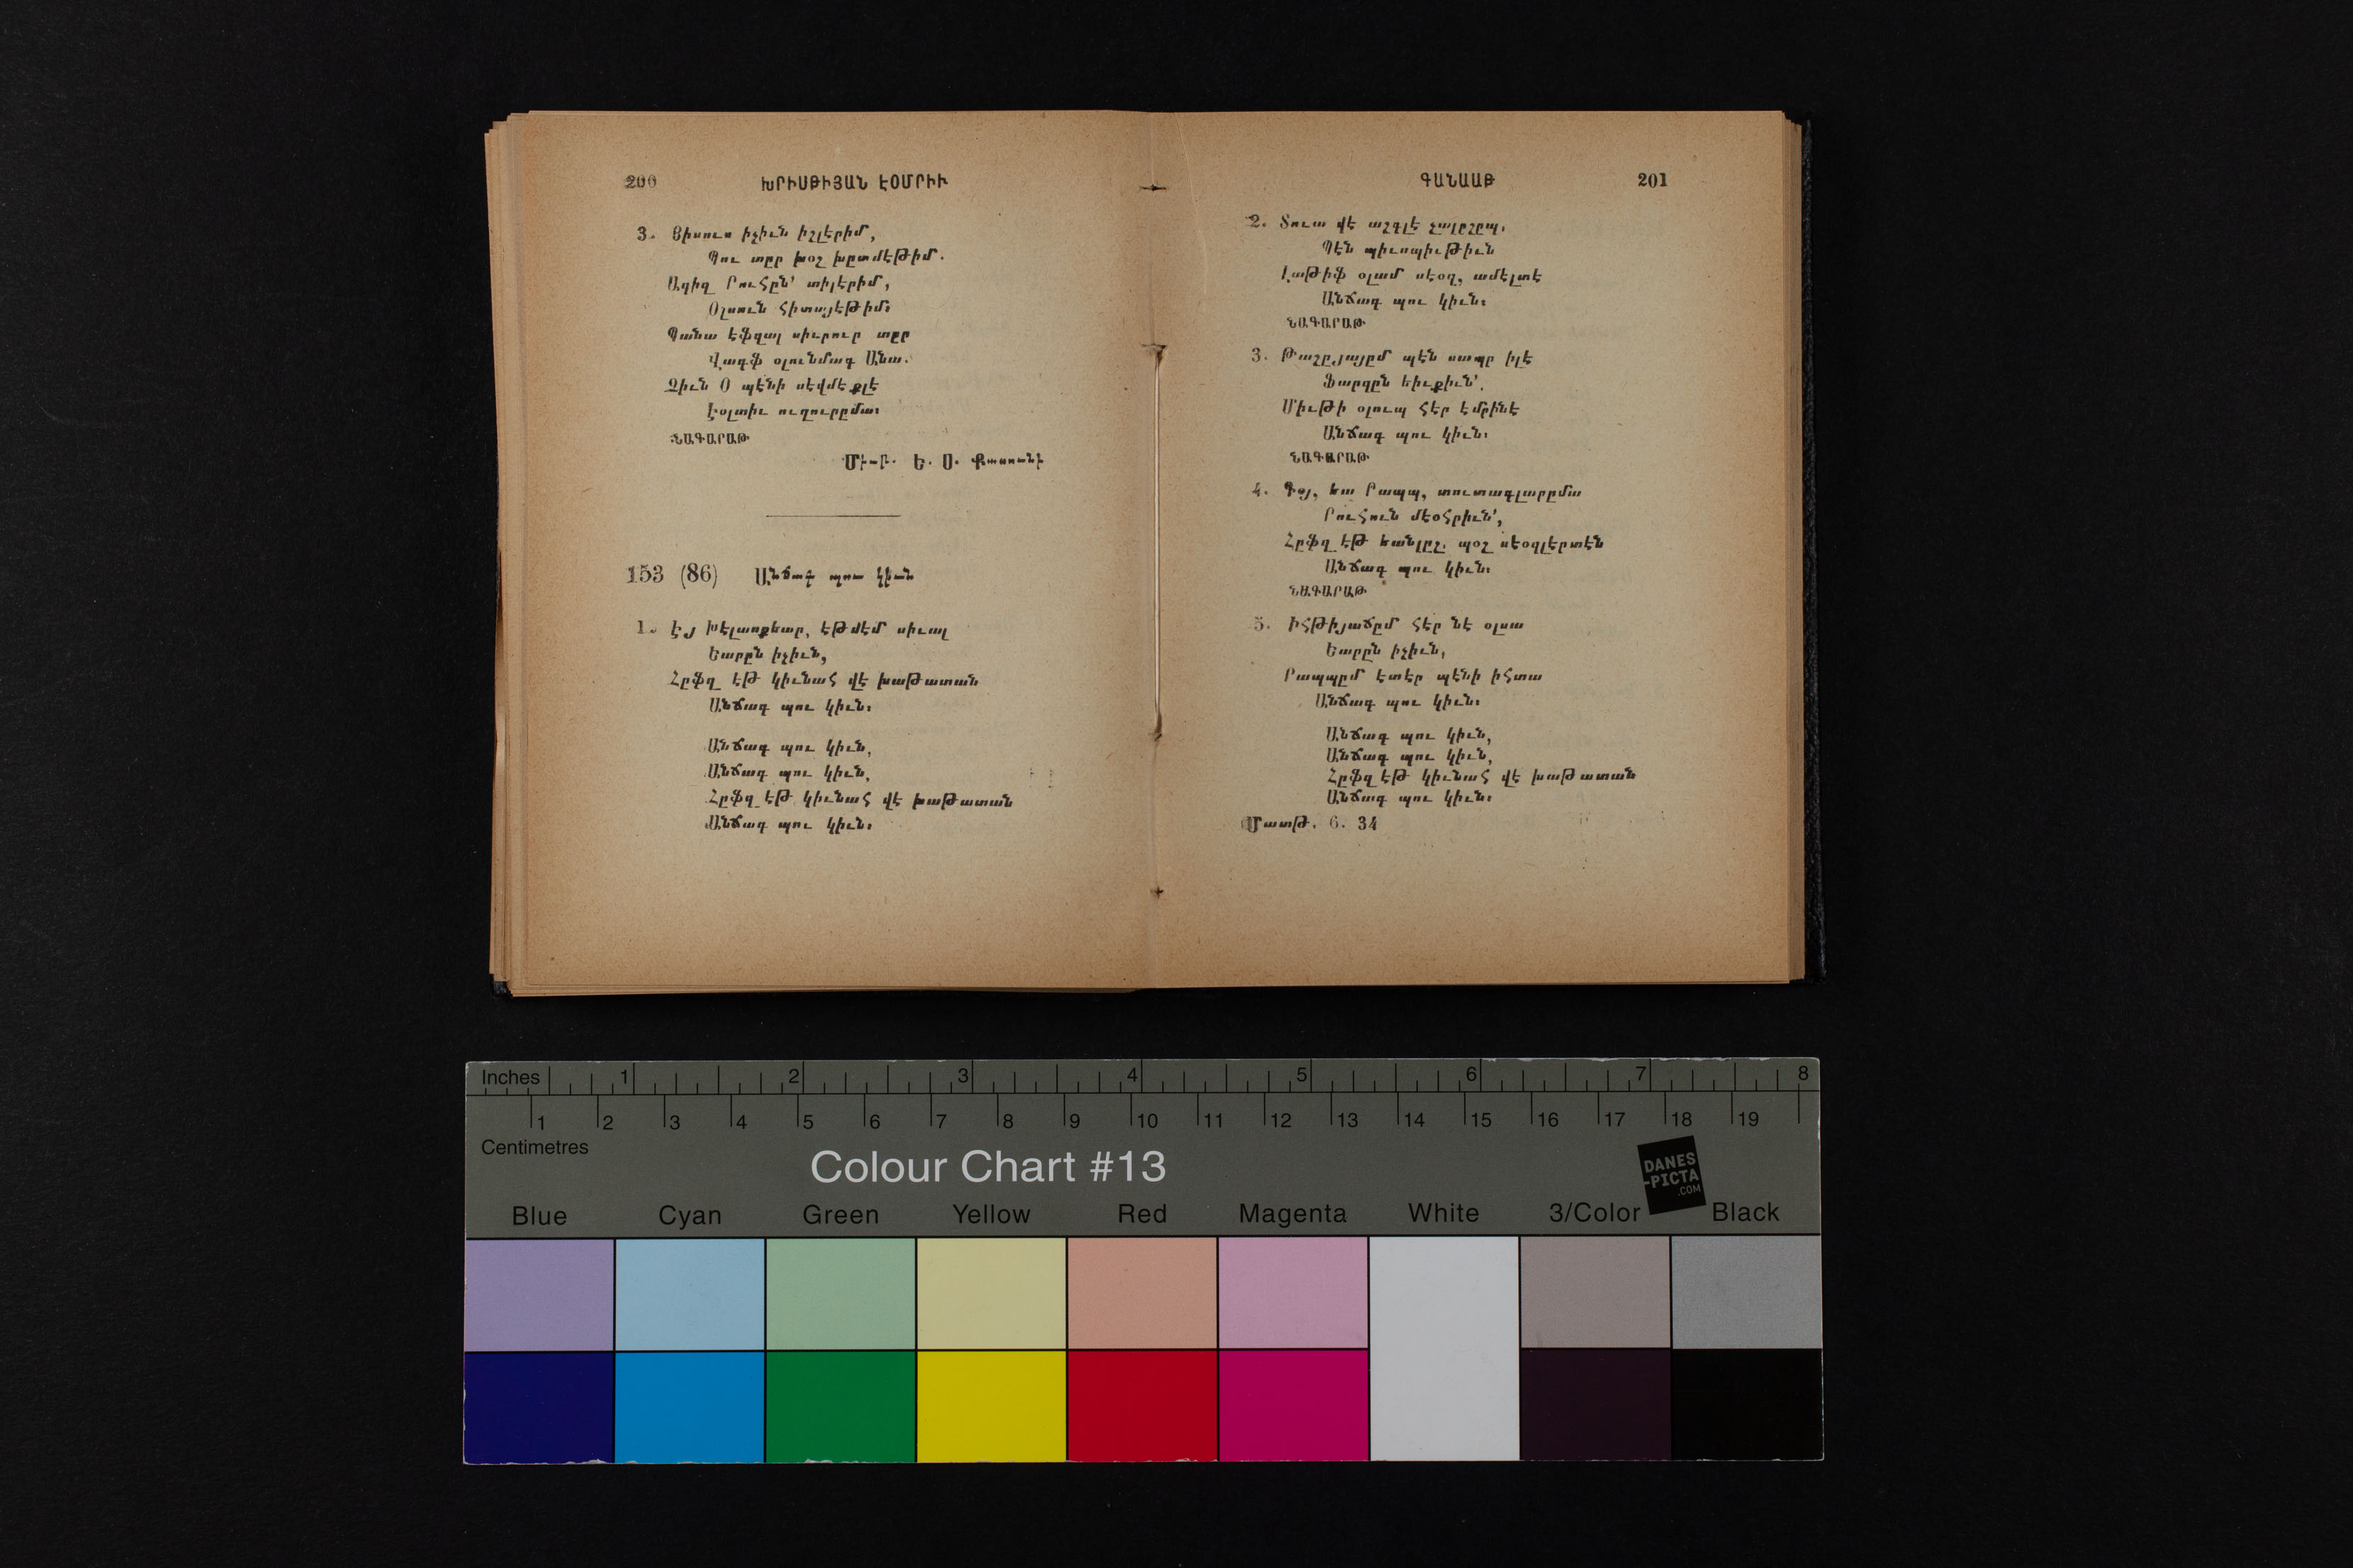 200
ԽՐԻՍԹԻՅԱՆ ԷՕՄՐԻՒ
3. Յիսուս իչիւն իշլերիմ,
Պու տըր խօշ խըտմէթիմ.
Ազիզ Րուհըն՛ տիլերիմ,
Օլսուն հիտայէթիմ։
Պանա էֆզալ սիւրուր տըր
Վագֆ օլունմագ Անա.
Զիւն Օ պէնի սէվմէքլէ
Էօլտիւ ուղուրըմա։
ՆԱԳԱՐԱԹ
Միւր. Ե. Ս. Քասունի
153 (86) Անճագ պու կիւն
1. Էյ Խէլասքեար, էթմէմ սիւալ
Եարըն իչիւն,
Հըֆզ էթ կիւնահ վէ խաթատան
Անճագ պու կիւն։
Անճագ պու կիւն,
Անճագ պու կիւն,
Հըֆզ էթ կիւնահ վէ խաթատան
Անճագ պու կիւն։
ԳԱՆԱԱԹ
201
2. Տուա վէ աշգլէ չալըշըպ.
Պէն պիւսպիւթիւն
Լաթիֆ օլամ սէօզ, ամէլտէ
Անճագ պու կիւն։
ՆԱԳԱՐԱԹ
3. Թաշըյայըմ պէն սապր իլէ
Ֆարզըն եիւքիւն՛.
Միւթի օլուպ հէր էմրինէ
Անճագ պու կիւն։
ՆԱԳԱՐԱԹ
4. Գօյ, եա Րապպ, տուտագլարըմա
Րուհուն մէօհրիւն՛,
Հըֆզ էթ եանլըշ, պօշ սէօզլէրտէն
Անճագ պու կիւն։
ՆԱԳԱՐԱԹ
5. Իհթիյաճըմ հէր նէ օլսա
Եարըն իչիւն,
Րապպըմ էտէր պէնի իհտա
Անճագ պու կիւն։
Անճագ պու կիւն,
Անճագ պու կիւն,
Հըֆզ էթ կիւնահ վէ խաթատան
Անճագ պու կիւն։
Մատթ. 6. 34
Inches 1 2 3 4 5 6 7 8
1 2 3 4 5 6 7 8 9 10 11 12 13 14 15 16 17 18 19
Centimetres
Colour Chart #13
DANES
-PICTA
.COM
Blue Cyan Green Yellow Red Magenta White 3/Color Black